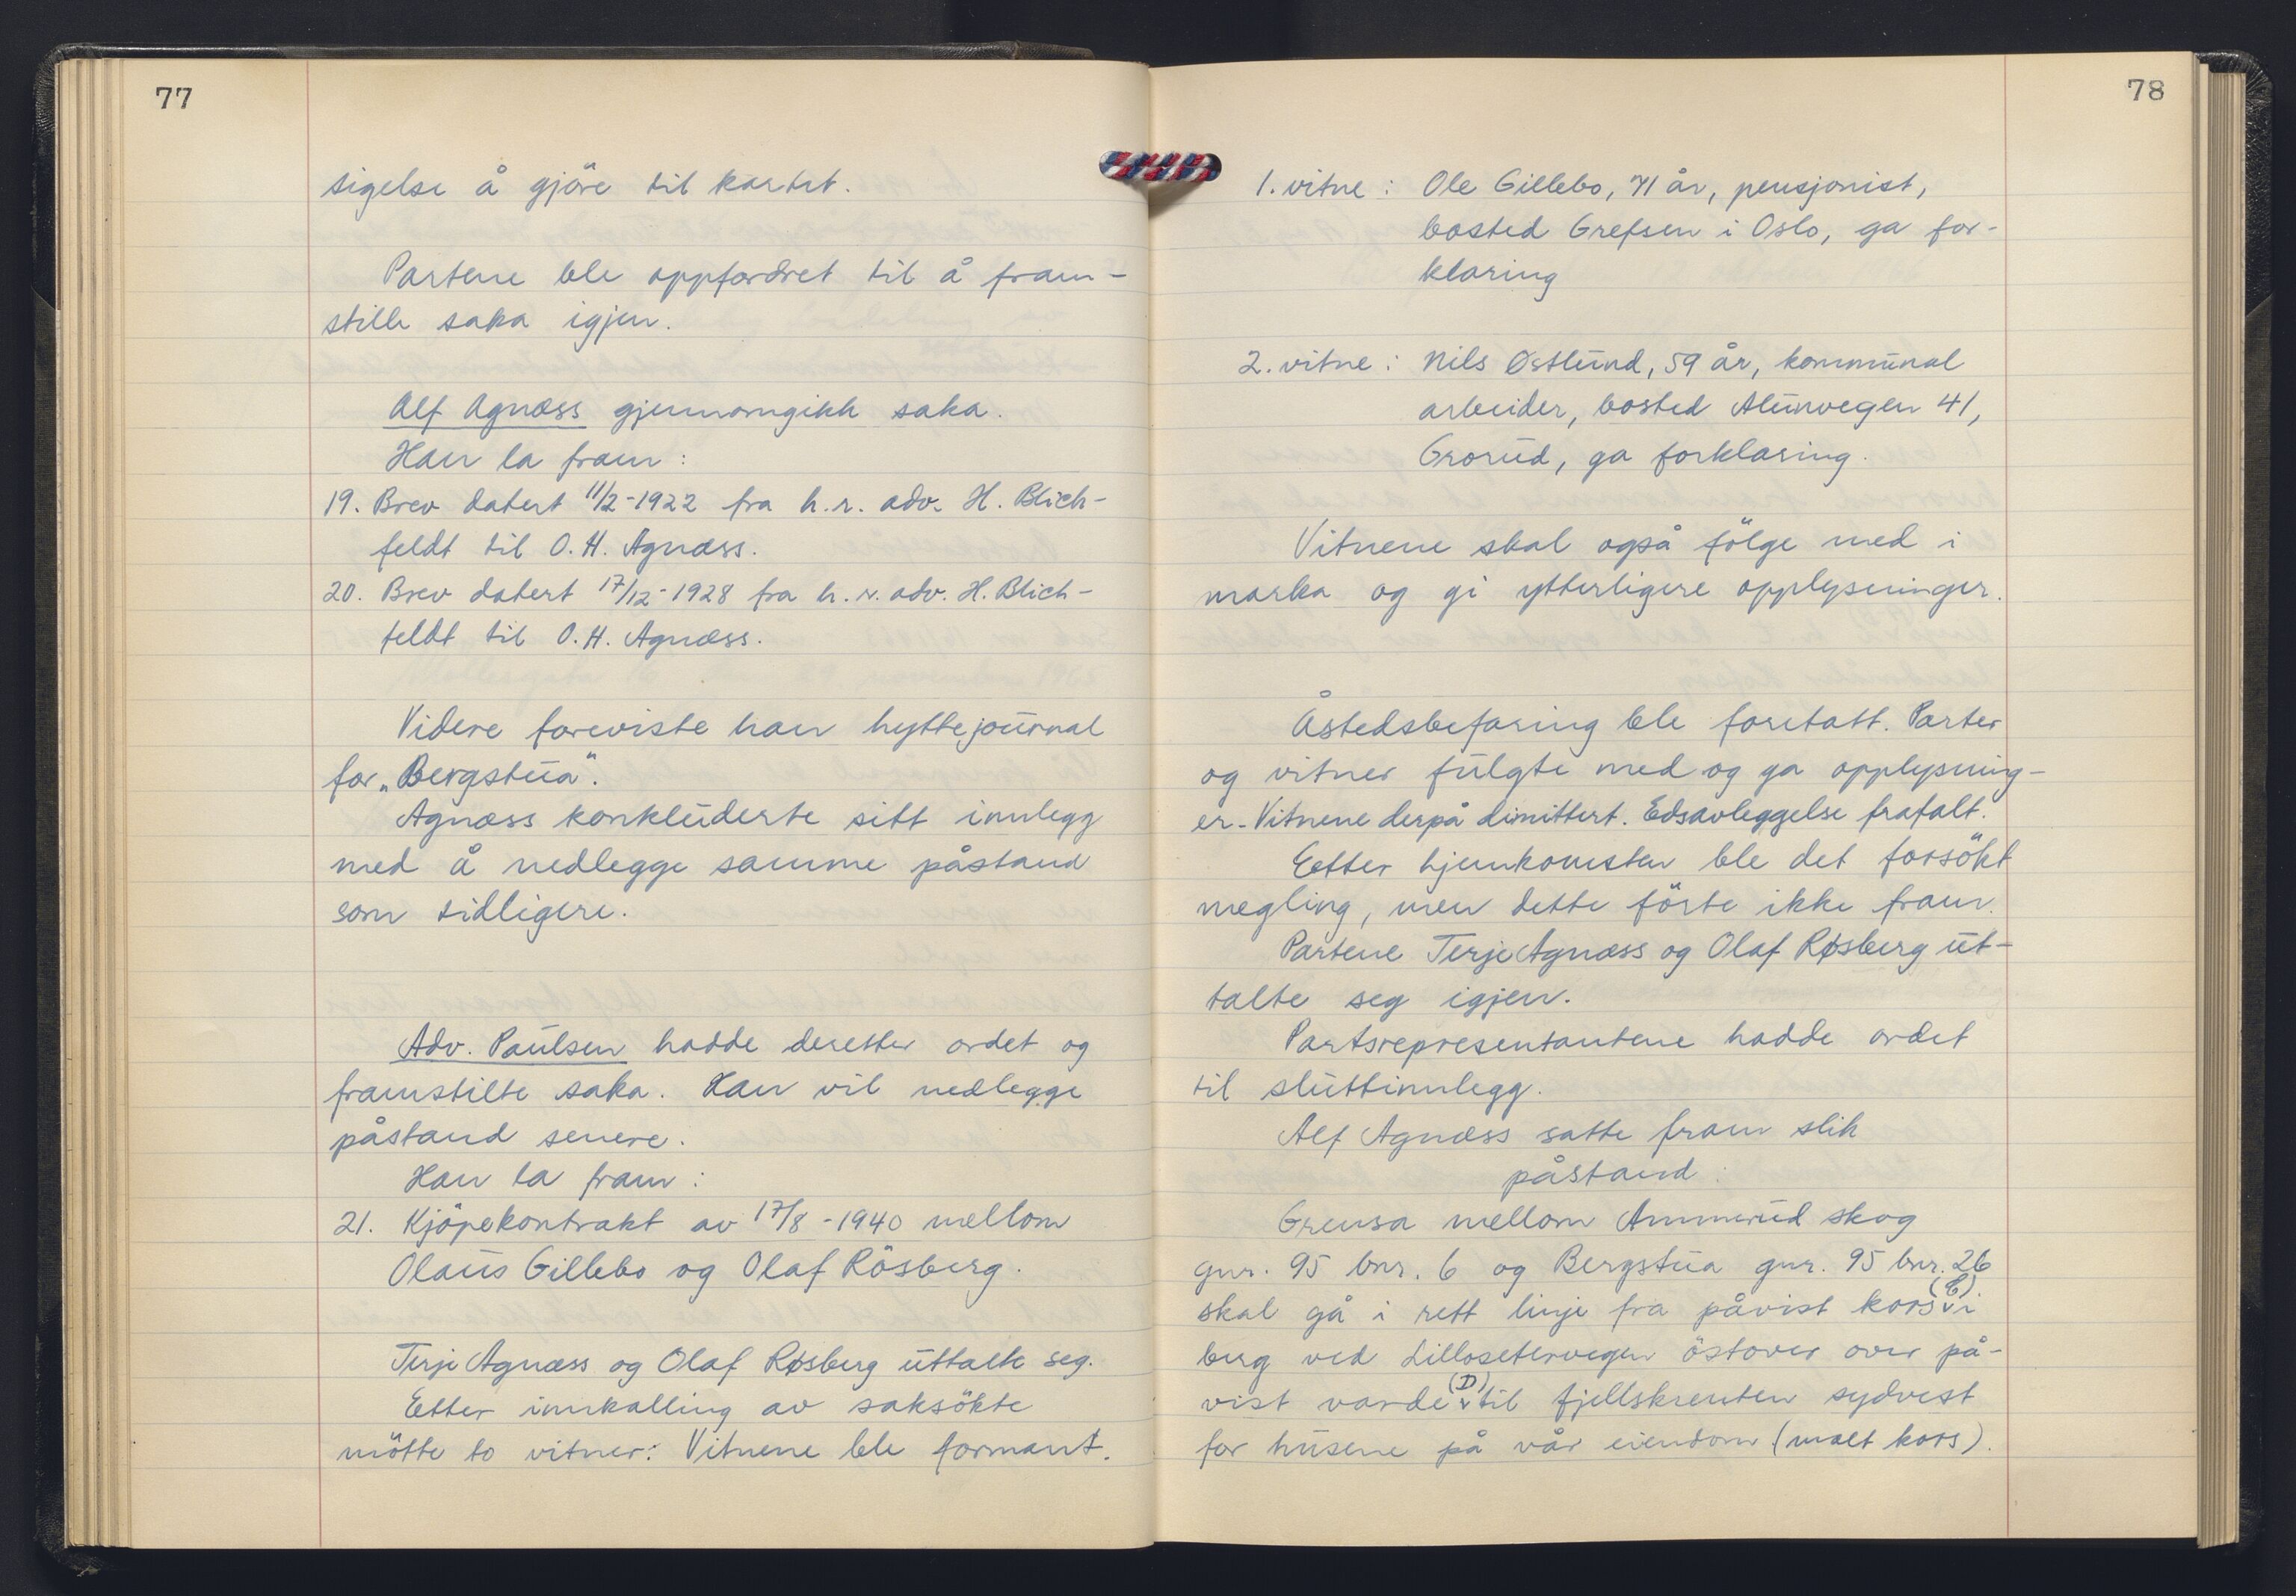 77
sigelse å gjöre til kartet.
Partene ble oppfordret til å fram-
stille saka igjen.
Alf Agnæss gjennomgikk saka.
Han la fram:
19. Brev datert 11/2-1922 fra h.r. adv. H. Blich-
feldt til O. H. Agnæss.
20. Brev datert 17/12-1928 fra h.r. adv. H. Blich-
feldt til O. H. Agnæss.
Videre foreviste han hyttejournal
for „Bergstua".
Agnæss konkluderte sitt innlegg
med å nedlegge samme påstand
som tidligere.
Adv. Paulsen hadde deretter ordet og
framstilte saka. Han vil nedlegge
påstand senere.
Han la fram:
21. Kjöpekontrakt av 17/8-1940 mellom
Olaus Gillebo og Olaf Rösberg.
Terje Agnæss og Olaf Røsberg uttalte seg.
Etter innkalling av saksökte
mötte to vitner: Vitnene ble formant.
78
1. vitne: Ole Gillebo, 71 år, pensjonist,
bosted Grefsen i Oslo, ga for-
klaring
2. vitne: Nils Østlund, 59 år, kommunal
arbeider, bosted Alunvegen 41,
Grorud, ga forklaring.
Vitnene skal også fölge med i
marka og gi ytterligere opplysninger.
Åstedsbefaring ble foretatt. Parter
og vitner fulgte med og ga opplysning-
er. Vitnene derpå dimittert. Edsavleggelse frafalt.
Eetter hjemkomsten ble det forsökt
megling, men dette förte ikke fram.
Partene Terje Agnæss og Olaf Røsberg ut-
talte seg igjen.
Partsrepresentantene hadde ordet
til sluttinnlegg.
Alf Agnæss satte fram slik
påstand:
Grensa mellom Ammerud skog
gnr. 95 bnr. 6 og Bergstua gnr. 95 bnr. 26
skal gå i rett linje fra påvist kors i
berg ved Lillosetervegen östover over på-
vist varde (D) til fjellskrenten sydvest
for husene på vår eiendom (malt kors).